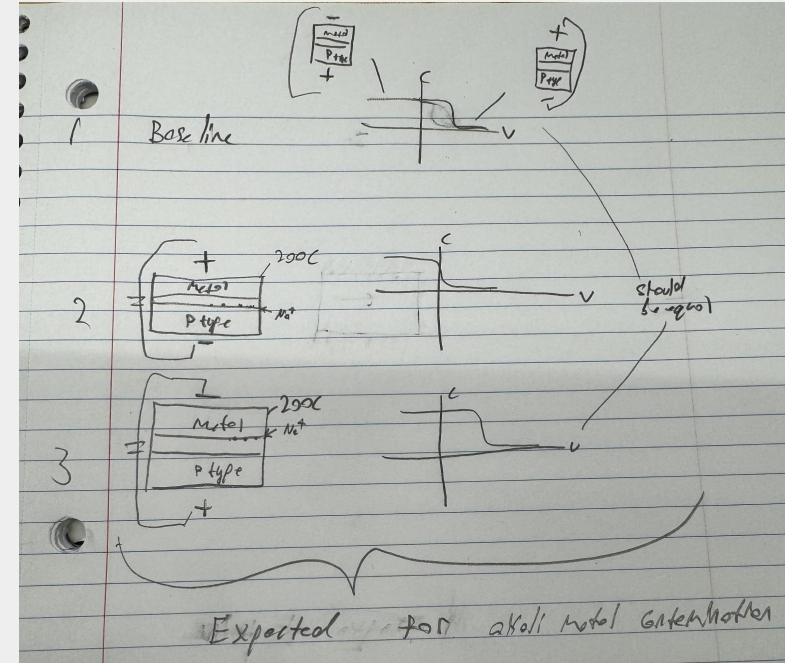 -
Metal
P type
+
+
Metal
P type
-
C
V
1 Baseline
-
2
+
200C
Metal
Na+
P type
-
C
V
should
be equal
3
-
200C
Metal
Na+
P type
+
C
V
Expected for alkali metal